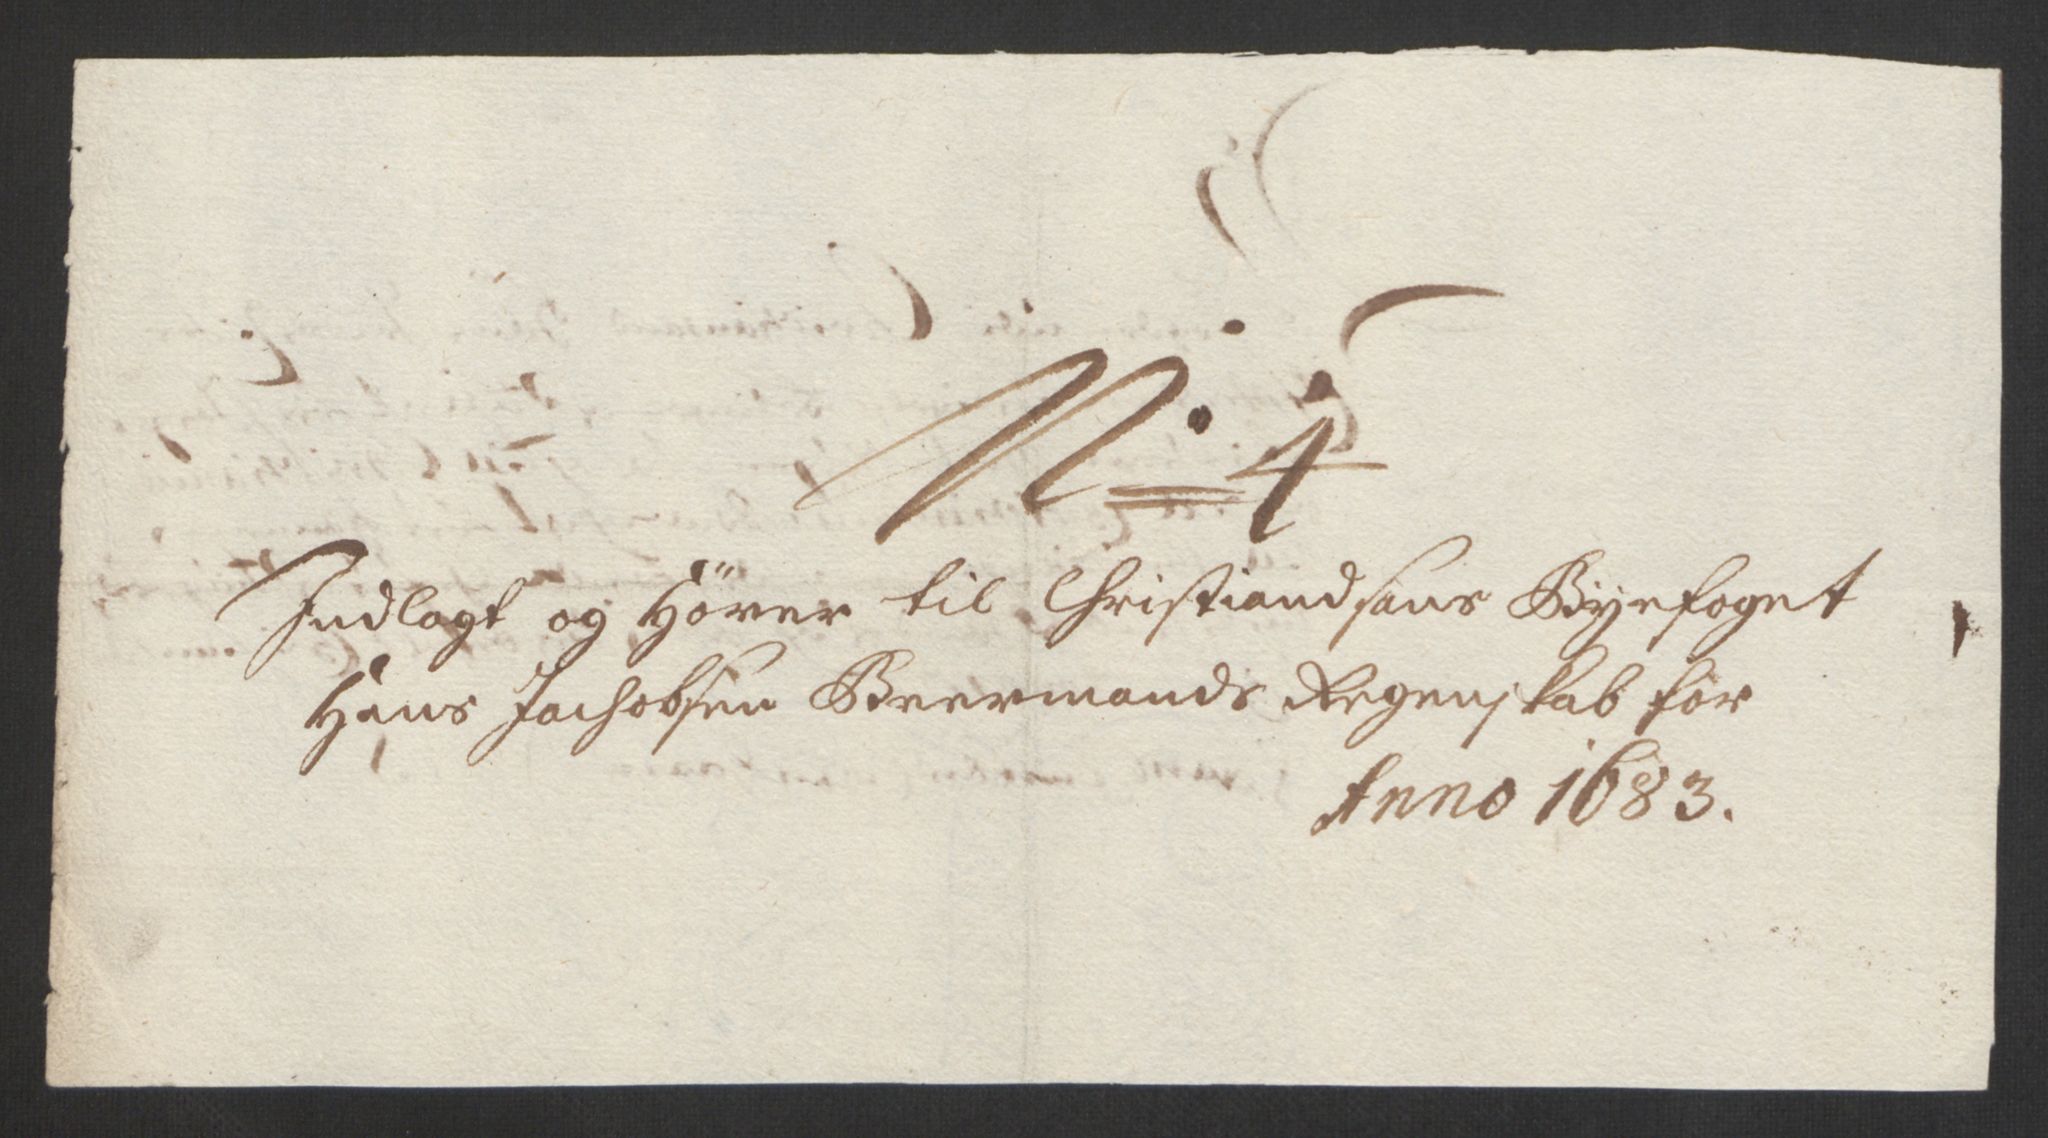 No 4
Indlagt og Hörer til Christiandsans Byefoget
Hans Jachobsen Beermands Regenskab for
Anno 1683.